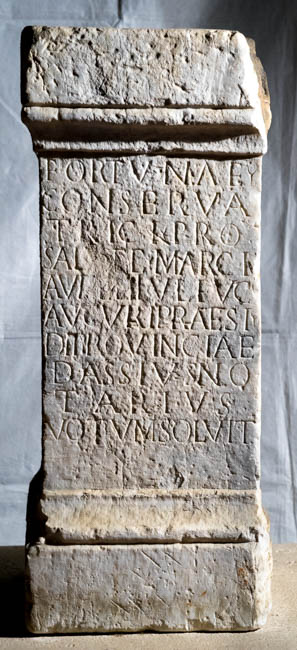 FORTVNAE
CONSERVA
TRICI PRO
SALVTE MARCI
AVGVRI PRAESI
DI PROVINCIAE
DASSIVS NO
TARIVS
VOTVM SOLVIT